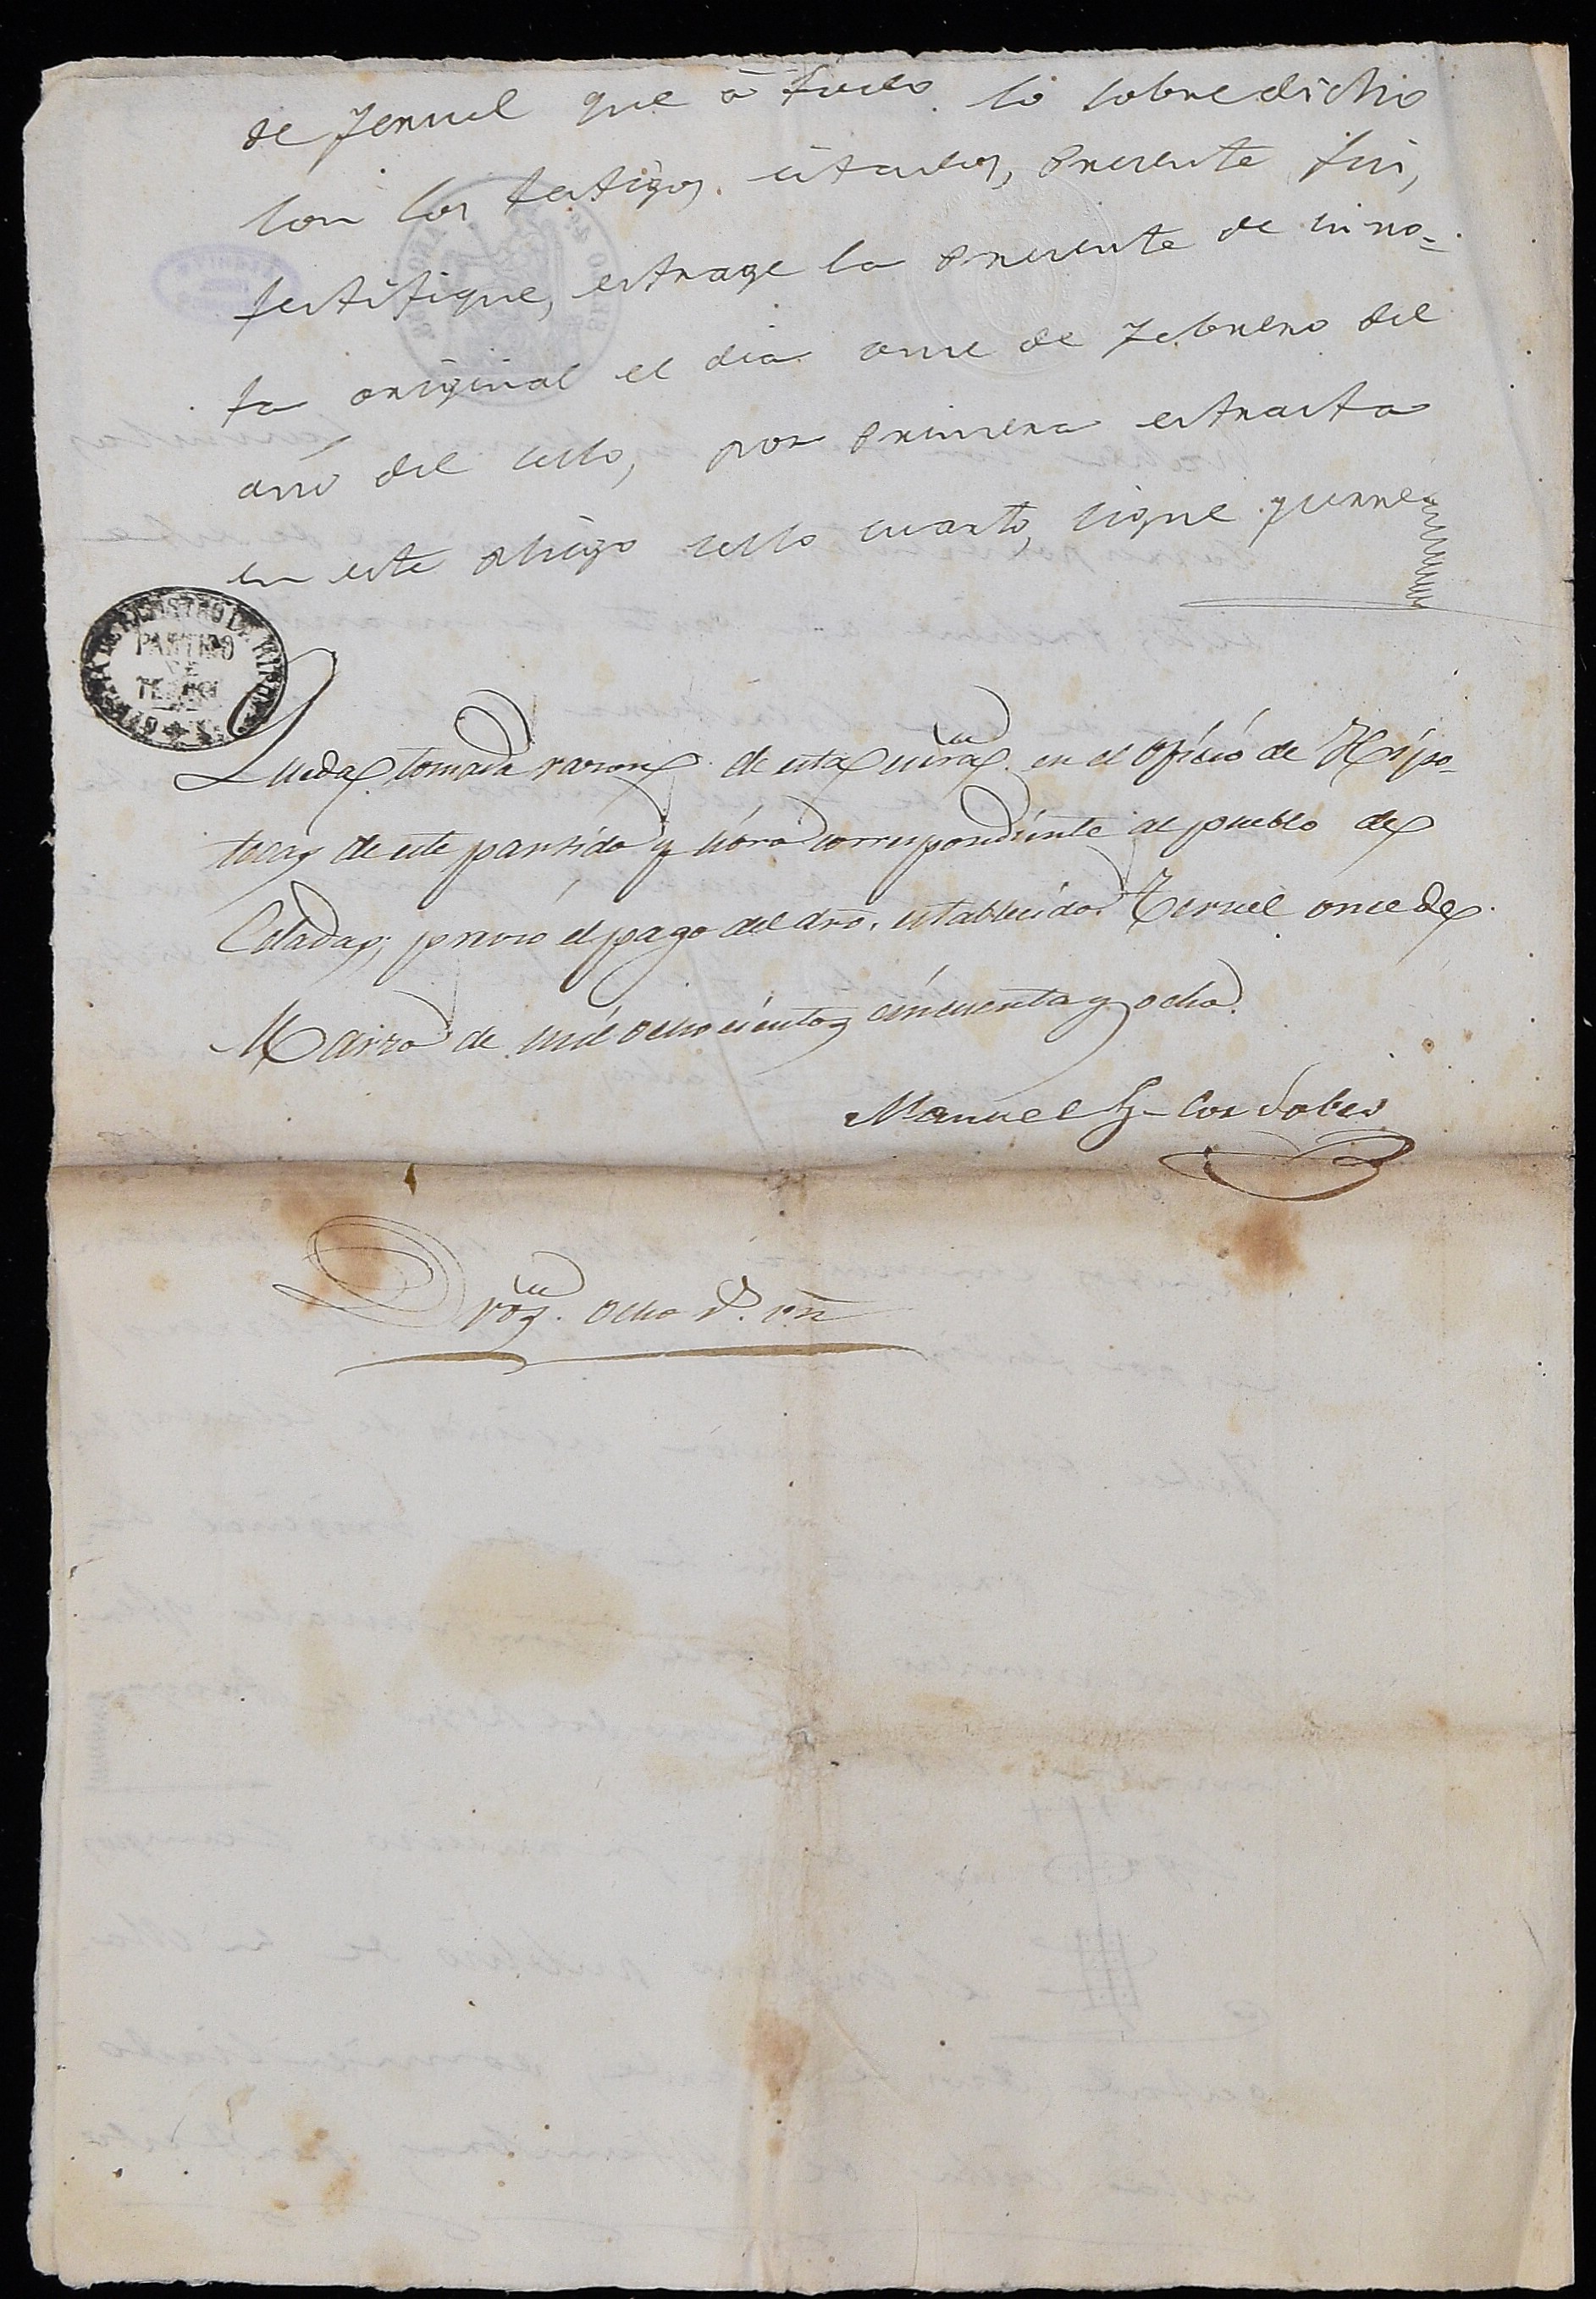 de Teruel que á todo lo sobredicho
con los testigos citados, presente fui,
testifique, estrage la presente de mi no=
ta original el dia once de Febrero del
año del sello, por primera estracta
en este pliego sello cuarto, signe y firme
PARTIDO
DE
TERUEL
Queda tomada razon de esta escra. en el oficio de Hipo-
tecas de este partido y libro correspondiente al pueblo de
Celadas; previo el pago del dro. establecido. Teruel once de
Marzo de mil ochocientos cincuenta y ocho.
Manuel G. Cordobes
Dros. ocho r. vn